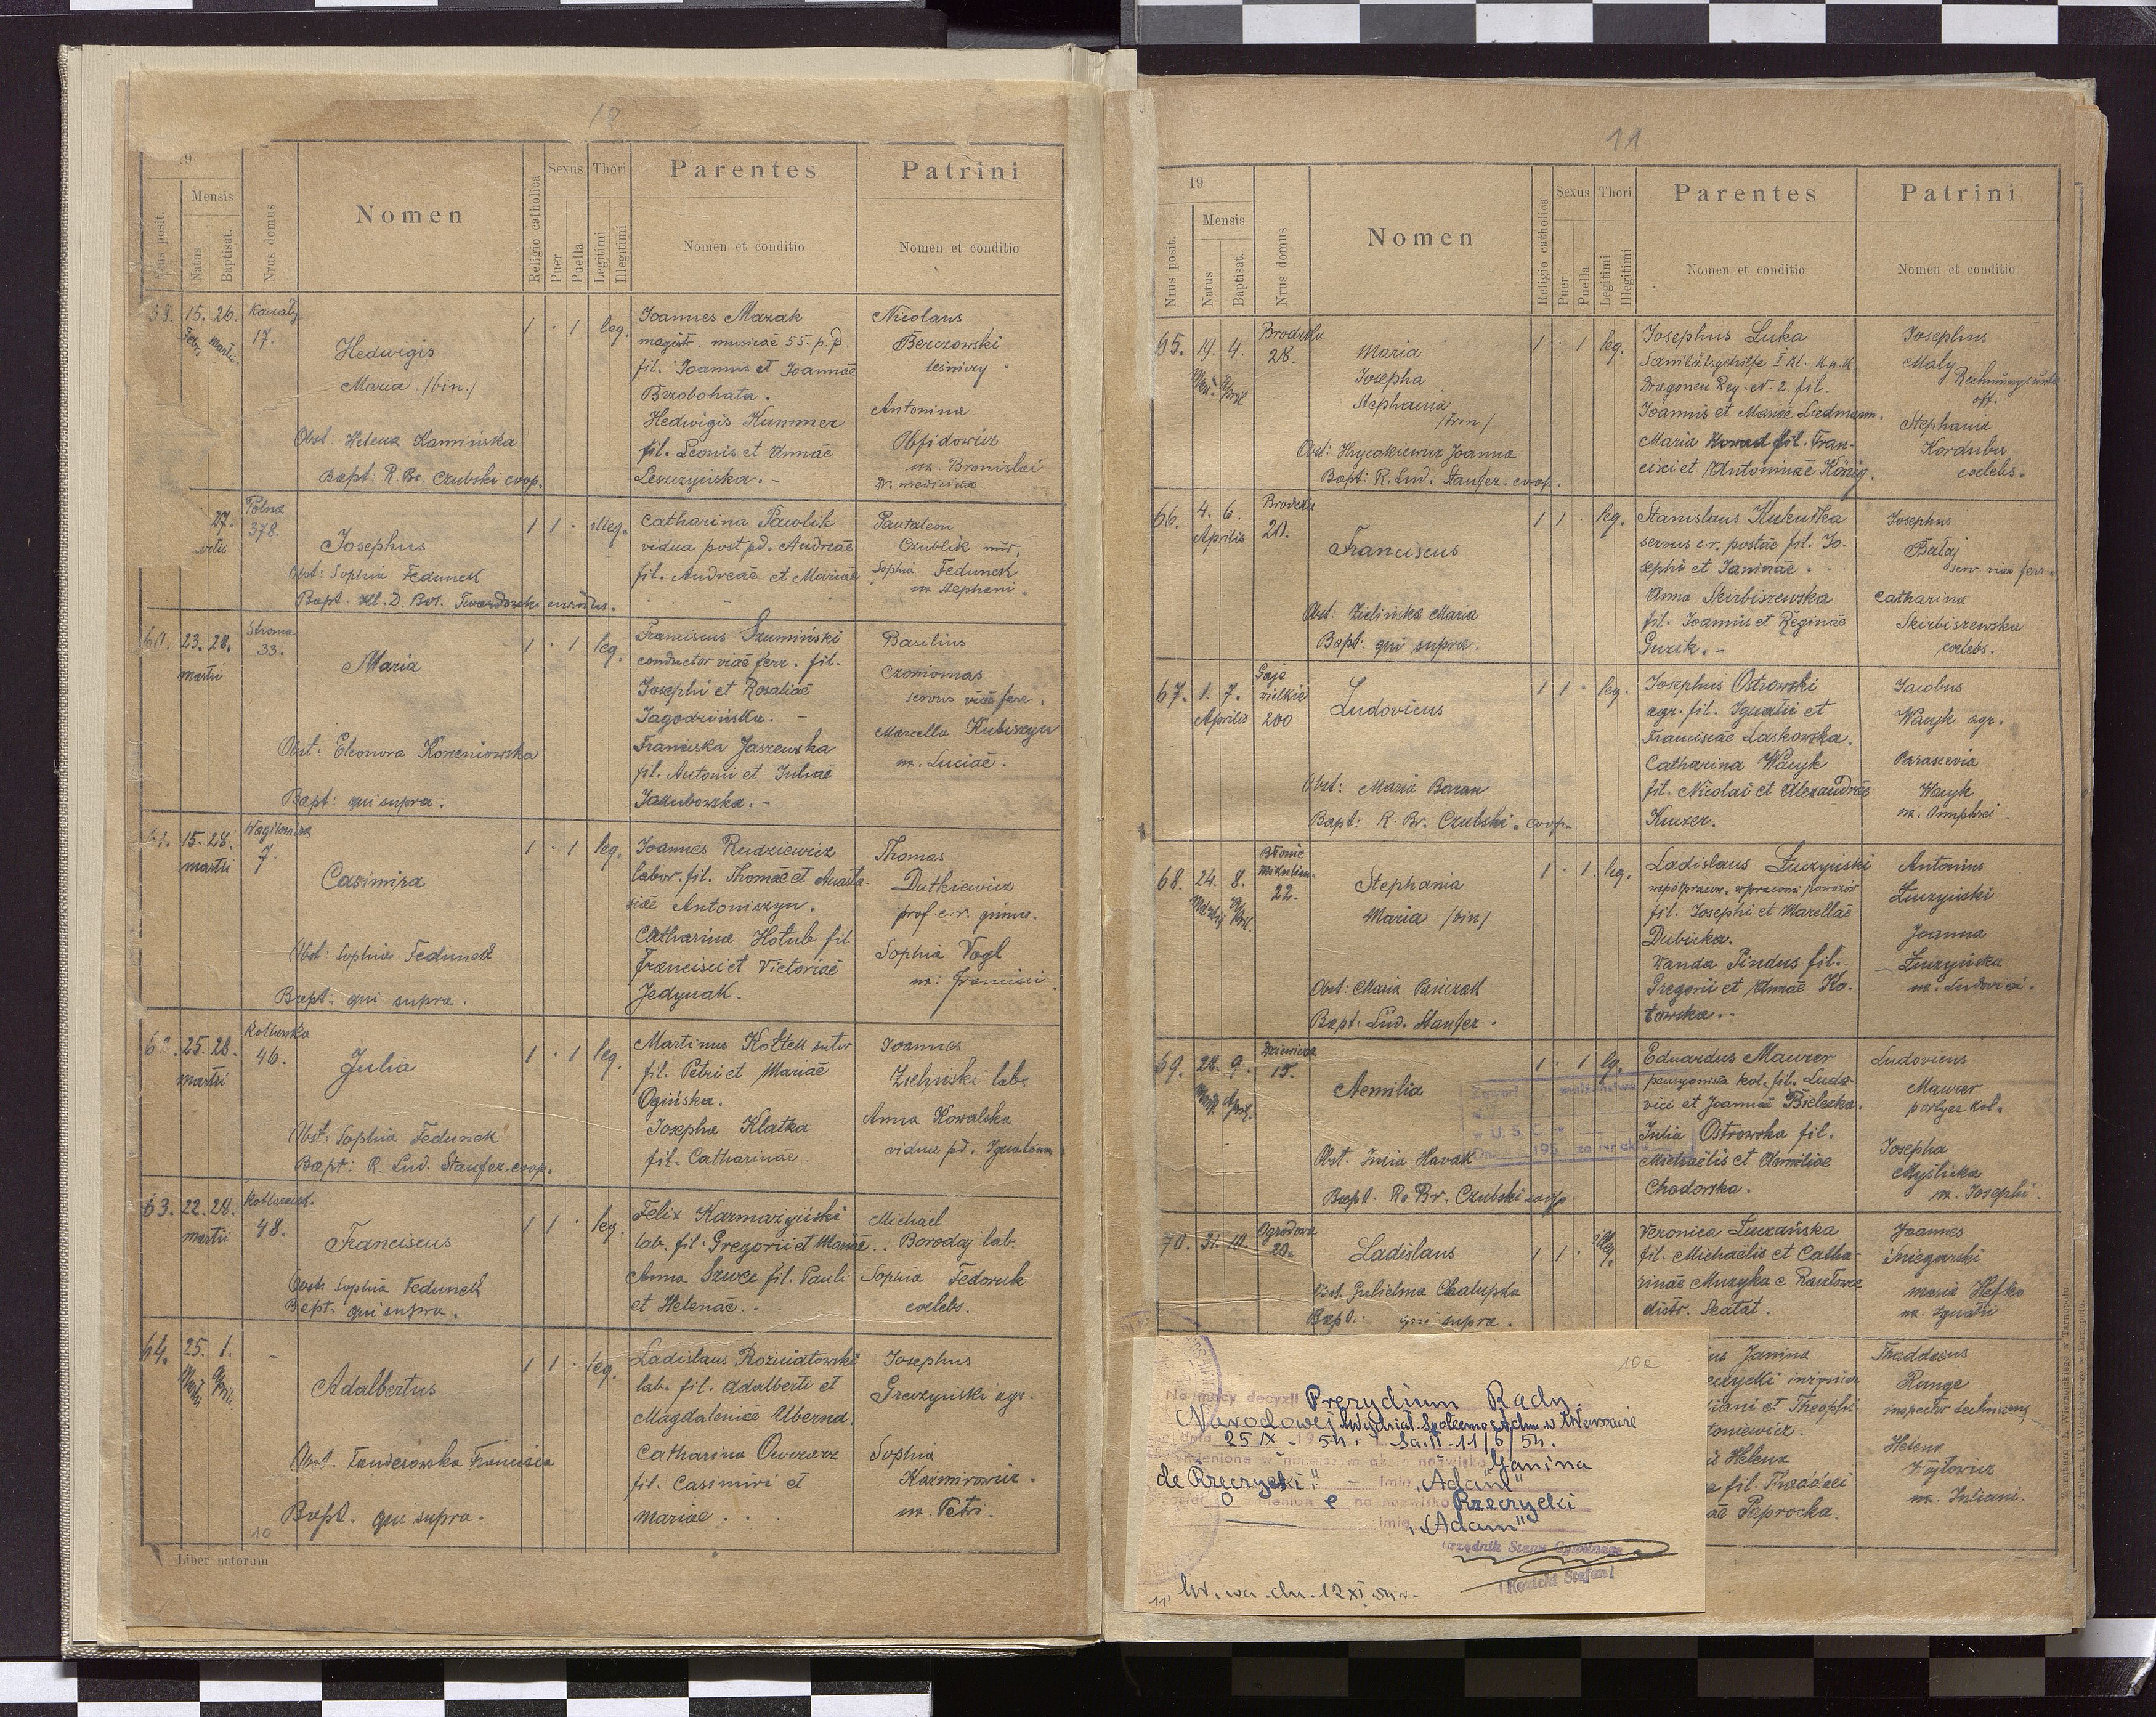 10
19
Mensis
Nrus posit.
Natus
Baptisat.
Nrus domus
Nomen
Religio catholica
Sexus
Puer
Puella
Thori
Legitimi
Illegitimi
Parentes
Nomen et conditio
Patrini
Nomen et conditio
58. 15. 26.
Febr. Martii
17.
Hedwigis
Maria /bin/
Obst: Helena Kamińska
Bapt: R. Br. Czubski coop.
1 · 1 leg.
Joannes Mazak
magistr. musicae 55. p. p.
fil. Joannis et Joannae
Brzobohata.
Hedwigis Kummer
fil. Leonis et Annae
Leszczyńska. -
Nicolaus
Berezowski
leśniczy.
Antonina
Abfidowicz
ux. Bronislai
Dr. medicinae
27.
Martii
Polna
378.
Josephus
Obst: Sophia Fedunek
1 1 · illeg.
Catharina Pawlik
vidua post pd. Andreae
fil. Andreae et Mariae
Pantaleon
Czublik
Sophia Fedunek
ux Stephani.
60. 23. 28.
Martii
Stroma
33.
Maria
Obst: Eleonora Korzeniowska
Bapt: qui supra.
1 · 1 leg.
Franciscus Szumiński
conductor viae ferr. fil.
Josephi et Rosaliae
Jagodzińska. -
Franciska Jaszewska
fil. Antonii et Juliae
Jakubowska. -
Basilius
Czoniomas
servus viae ferr.
Marcella Kubiszyn
ux. Luciae.
61. 15. 28.
Martii
7.
Casimira
Obst: Sophia Fedunek
Bapt: qui supra.
1 · 1 leg.
Joannes Rudziewicz
labor. fil. Thomae et Anasta-
siae Antoniszyn.
Catharina Hołub fil.
Francisci et Victoriae
Jedynak.
Thomas
Dutkiewicz
prof. c. r. gimn.
Sophia Vogl
ux. Francisci.
62. 25. 28.
Martii
46.
Julia
Obst: Sophia Fedunek
Bapt: R. Lud. Staufer. coop.
1 · 1 leg.
Martinus Kołtek sutor
fil. Petri et Mariae
Ogińska.
Josepha Klatka
fil. Catharinae.
Joannes
Zieliński lab.
Anna Kowalska
vidua pd. Ignatium
63. 22. 28.
Martii
48.
Franciscus
Obst: Sophia Fedunek
Bapt. qui supra.
1 1 · leg.
Felix Karmazyński
lab. fil. Gregorii et Mariae
Anna Szwec fil. Pauli
et Helenae.
Michaël
Borodaj lab.
Sophia Fedoruk
coelebs.
64. 25. 1.
Martii Apr.
Adalbertus
Bapt. qui supra.
1 1 · leg.
Ladislaus Rożniatowski
lab. fil. Adalberti et
Magdalenae Ubernd.
Catharina Owczarz
fil. Casimiri et
Mariae.
Josephus
Greczyński agr.
Sophia
Kazimirowicz.
ux. Petri.
10
Liber natorum
11
19
Mensis
Nrus posit.
Natus
Baptisat.
Nrus domus
Nomen
Religio catholica
Sexus
Puer
Puella
Thori
Legitimi
Illegitimi
Parentes
Nomen et conditio
Patrini
Nomen et conditio
65. 14. 4.
28.
Maria
Josepha
Stephania
/trin/
Obst: Hrycakiewicz Joanna
Bapt: R. Lud. Staufer. coop.
1 · 1 leg.
Josephus Luka
Sanitätsgehilfe I Kl. K.u.K
Dragoner Reg. N. 2. fil.
Joannis et Mariae Liedmann.
Maria fil. Fran-
cisci et Antoninae König.
Josephus
Maly
Rechnungsunter-
off.
Stephania
Korduba
coelebs.
66. 4. 6.
Aprilis
Brodzka
20.
Franciscus
Obst: Zielińska Maria
Bapt: qui supra.
1 1 · leg.
Stanislaus Kukułka
servus c. r. postae fil. Jo-
sephi et Janinae.
Anna Skirbiszewska
fil. Joannis et Reginae
Guzik. -
Josephus
Bałaj
serv. viae ferr.
Catharina
Skirbiszewska
coelebs.
67. 1. 7.
Aprilis
Gaje
wielkie
200
Ludovicus
Obst: Maria Baran
Bapt: R. Br. Czubski. coop.
1 1 · leg.
Josephus Ostrowski
agr. fil. Ignatii et
Franciscae Laskowska.
Catharina Waryk
fil. Nicolai et Alexandrae
Kuczer.
Jacobus
Waryk agr.
Parascevia
Waryk
ux. Onuphrei
68. 24. 8.
22.
Stephania
Maria /bin/
Obst: Maria Pańczak
Bapt: Lud. Staufer.
1 · 1. leg.
Ladislaus Łuczyński
fil. Josephi et Marellae
Dubicka.
Wanda Pindus fil.
Gregorii et Annae Ko-
towska. -
Antonius
Łuczyński
Joanna
Łuczyńska
ux. Ludovici.
69. 28. 9.
15.
Aemilia
Obst. Julia Havak
Bapt. R. Br. Czubski coop
1 · 1 leg.
Eduardus Maurer
fil. Ludo-
vici et Joannae Bielecka.
Julia Ostrowska fil.
Michaëlis et Aemiliae
Chodorska.
Ludovicus
Maurer
portyer kol.
Josepha
Myślicka
ux. Josephi.
70. 31. 10.
Ogrodowa
20.
Ladislaus
Obst. Gulielma Chalupda
Bapt: qui supra.
1 1 · illeg.
Veronica Łuczańska
fil. Michaëlis et Catha-
rinae Muzyka e Rasztowce
distr. Skałat.
Joannes
Śniegurski
Maria Hefko
ux. Ignatii
Janina
inżynier
et Theophi
toniewicz.
Helena
fil. Thaddaei
Paprocka.
Thaddaeus
Runge
inspector techniczny
Helena
Wojtowicz
ux. Juliani.
10a
Na mocy decyzji Prezydium Rady
Narodowej
dnia 25 IX - 54 r. Sa.II-11/6/54.
wymienione w niniejszym akcie nazwisko "Janina
de Rzeczycki" — imię „Adam"
został o zmienion e na nazwisko Rzeczycki
imię „Adam"
Urzędnik Stanu Cywilnego
(Kozicki Stefan)
W-wa. dn. 12 XI 54 r.